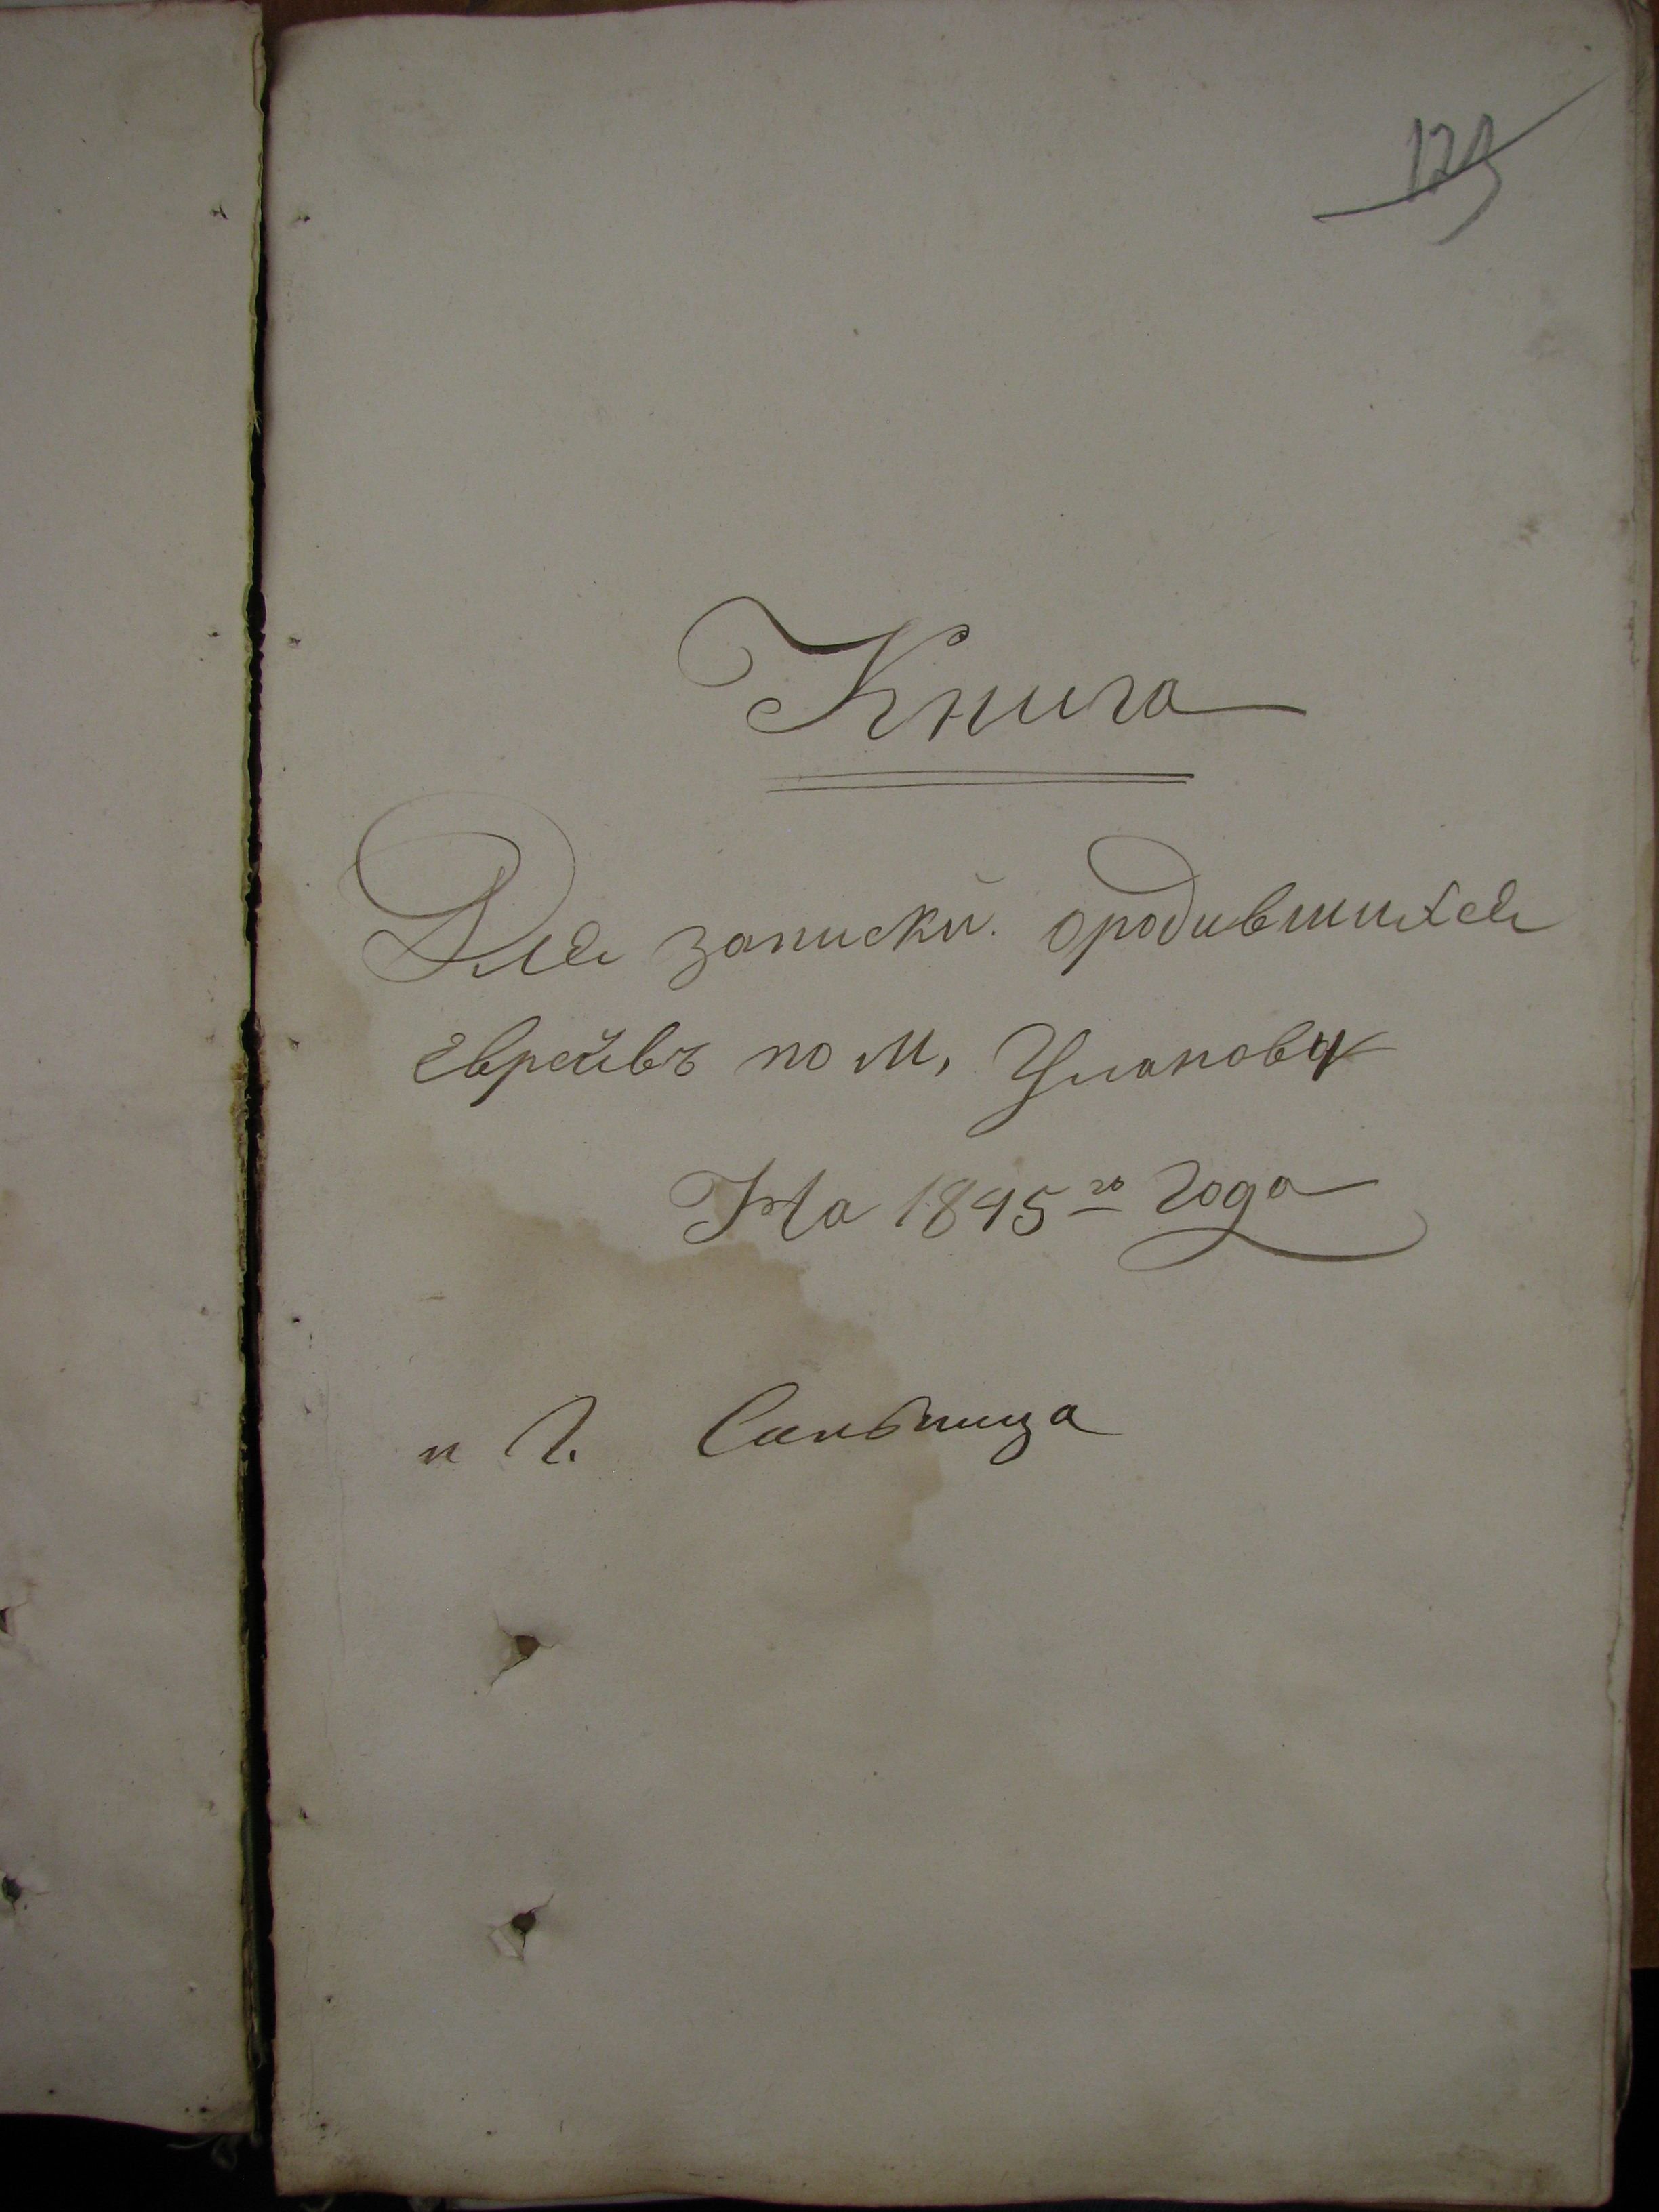 Книга
Для записки ородившихся
еврейвъ по м, Улановy
На 1845го Года
и г. Сальница